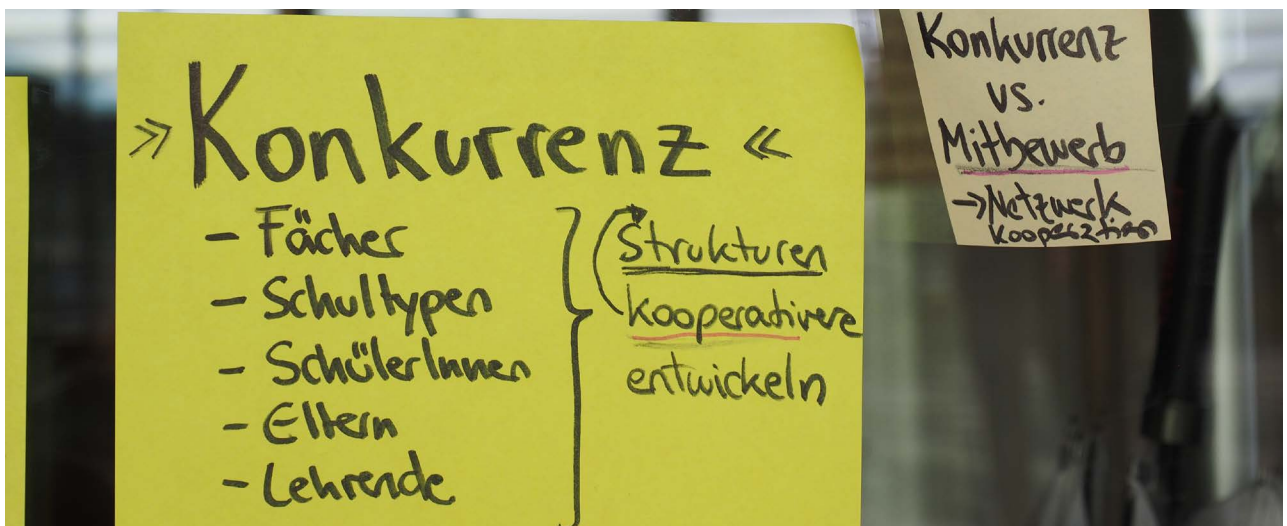 »Konkurrenz«
- Fächer
- Schultypen
- SchülerInnen
- Eltern
- Lehrende
Strukturen
kooperativere
entwickeln
Konkurrenz
vs.
Mitbewerb
→ Netzwerk
Kooperation